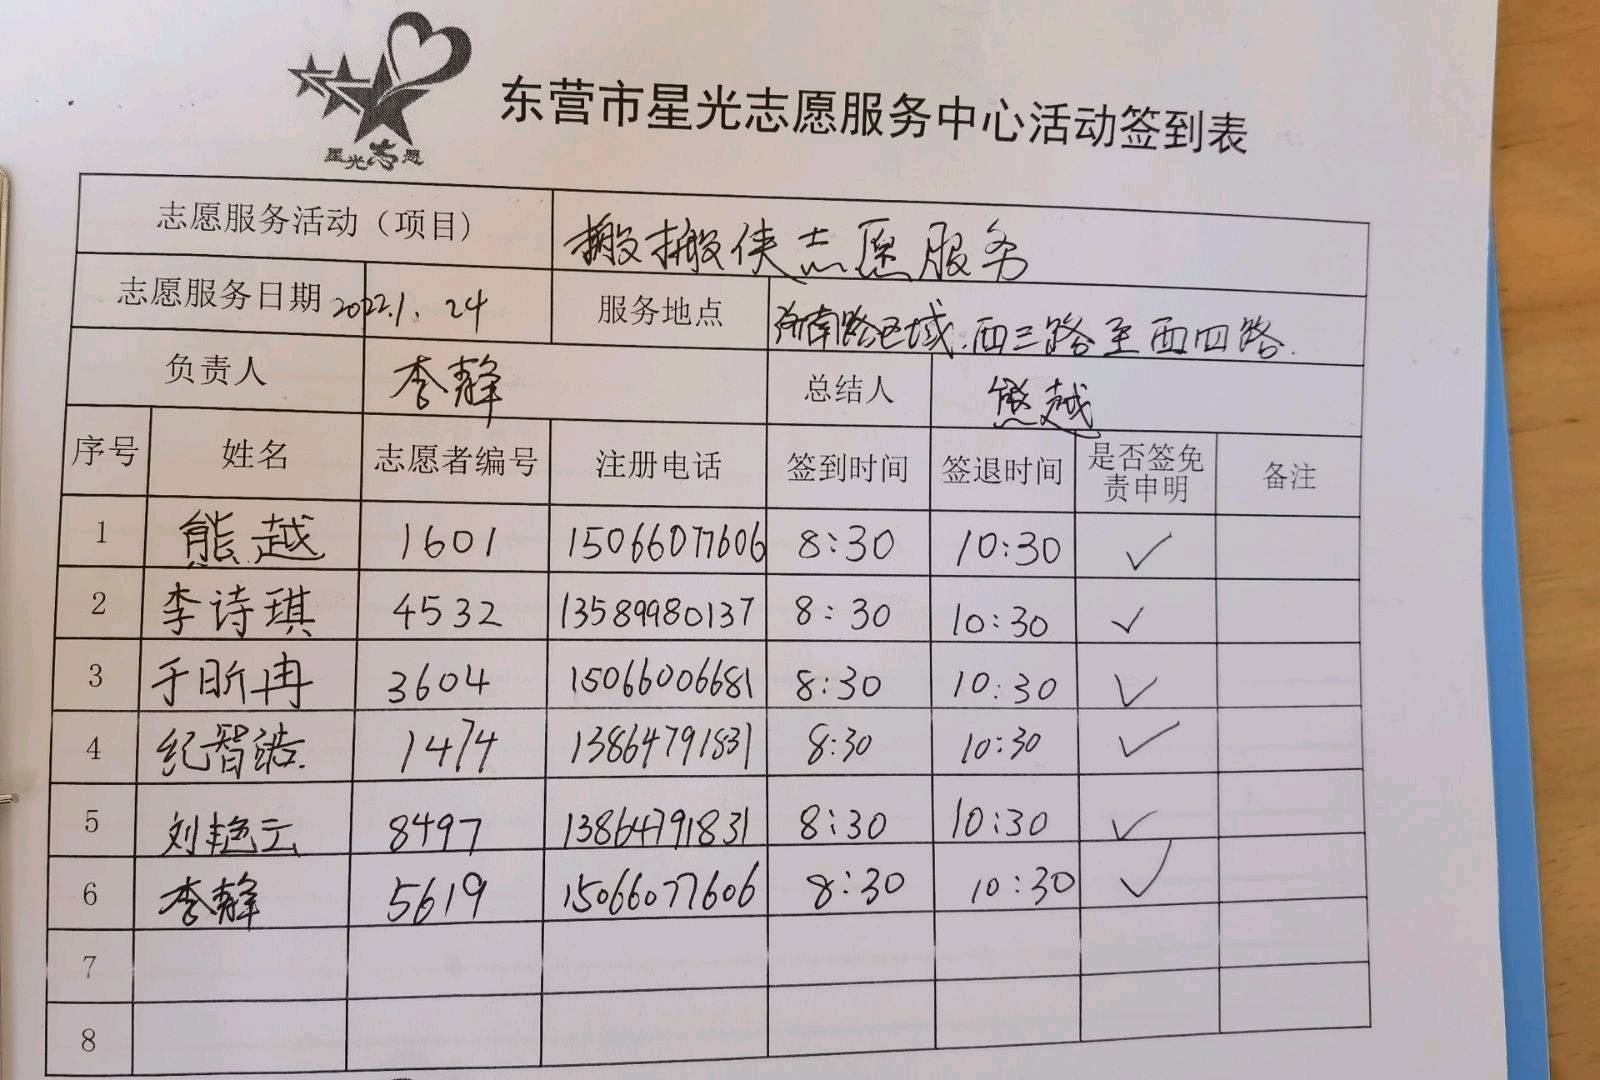 星光志愿
东营市星光志愿服务中心活动签到表
志愿服务活动（项目） 搬搬侠志愿服务
志愿服务日期 2022.1.24 服务地点 济南路区域.西三路至西四路.
负责人 李静 总结人 熊越
序号 姓名 志愿者编号 注册电话 签到时间 签退时间 是否签免责申明 备注
1 熊越 1601 15066077606 8:30 10:30 ✓
2 李诗琪 4532 13589980137 8:30 10:30 ✓
3 于昕冉 3604 15066006681 8:30 10:30 ✓
4 纪智皓 1474 13864791831 8:30 10:30 ✓
5 刘艳云 8497 13864791831 8:30 10:30 ✓
6 李静 5619 15066077606 8:30 10:30 ✓
7
8